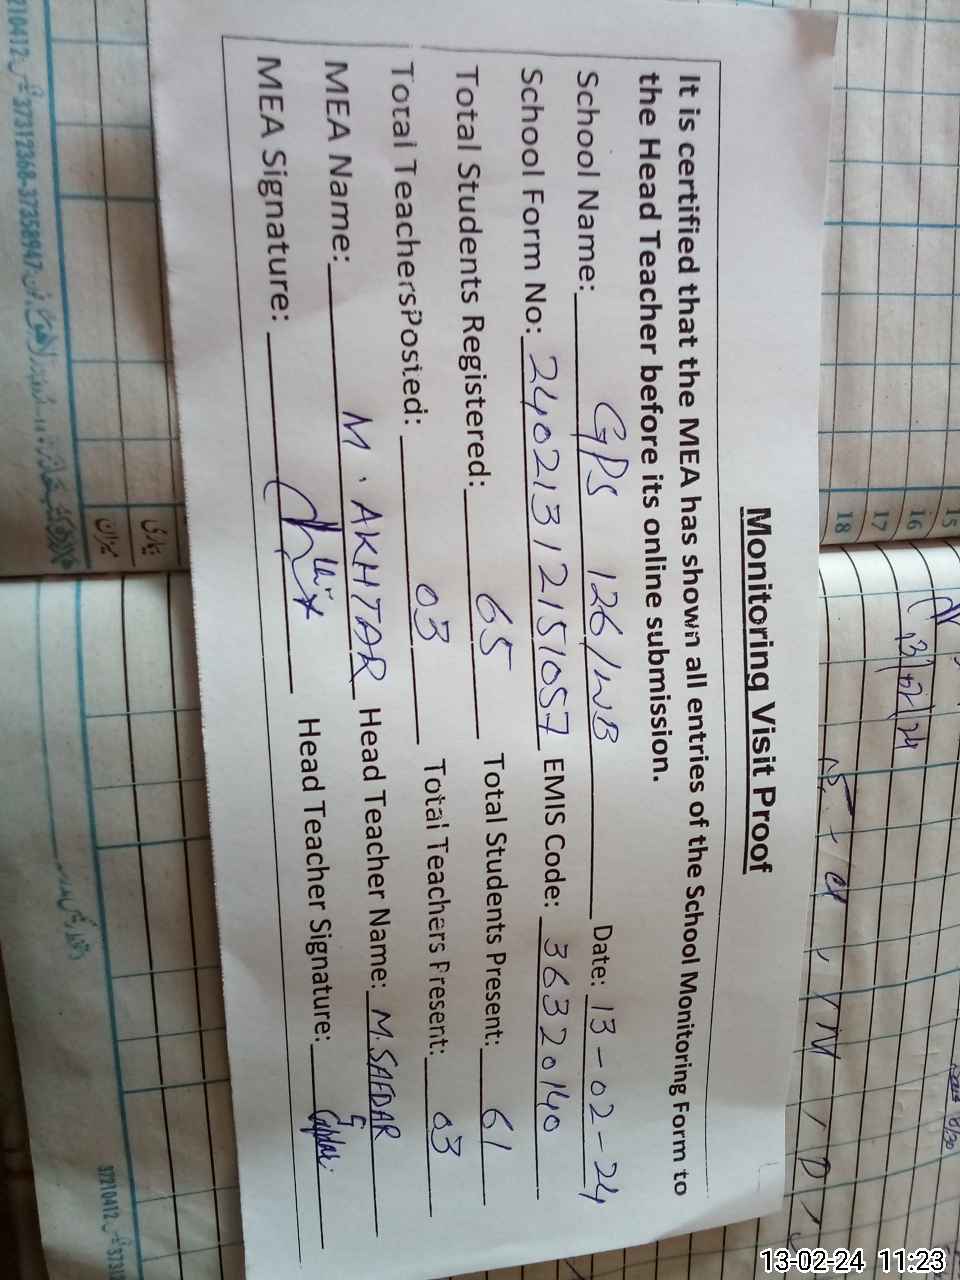 Monitoring Visit Proof
It is certified that the MEA has shown all entries of the School Monitoring Form to
the Head Teacher before its online submission.
School Name: GPS 126/WB Date: 13-02-24
School Form No: 24021312151057 EMIS Code: 36320140
Total Students Registered: 65 Total Students Present: 61
Total TeachersPosted: 03 Total Teachers Present: 03
MEA Name: M. AKHTAR Head Teacher Name: M.SAFDAR
MEA Signature: Head Teacher Signature:
15
16
17
18
37312368-37358947
37210412
13-02-24 11:23